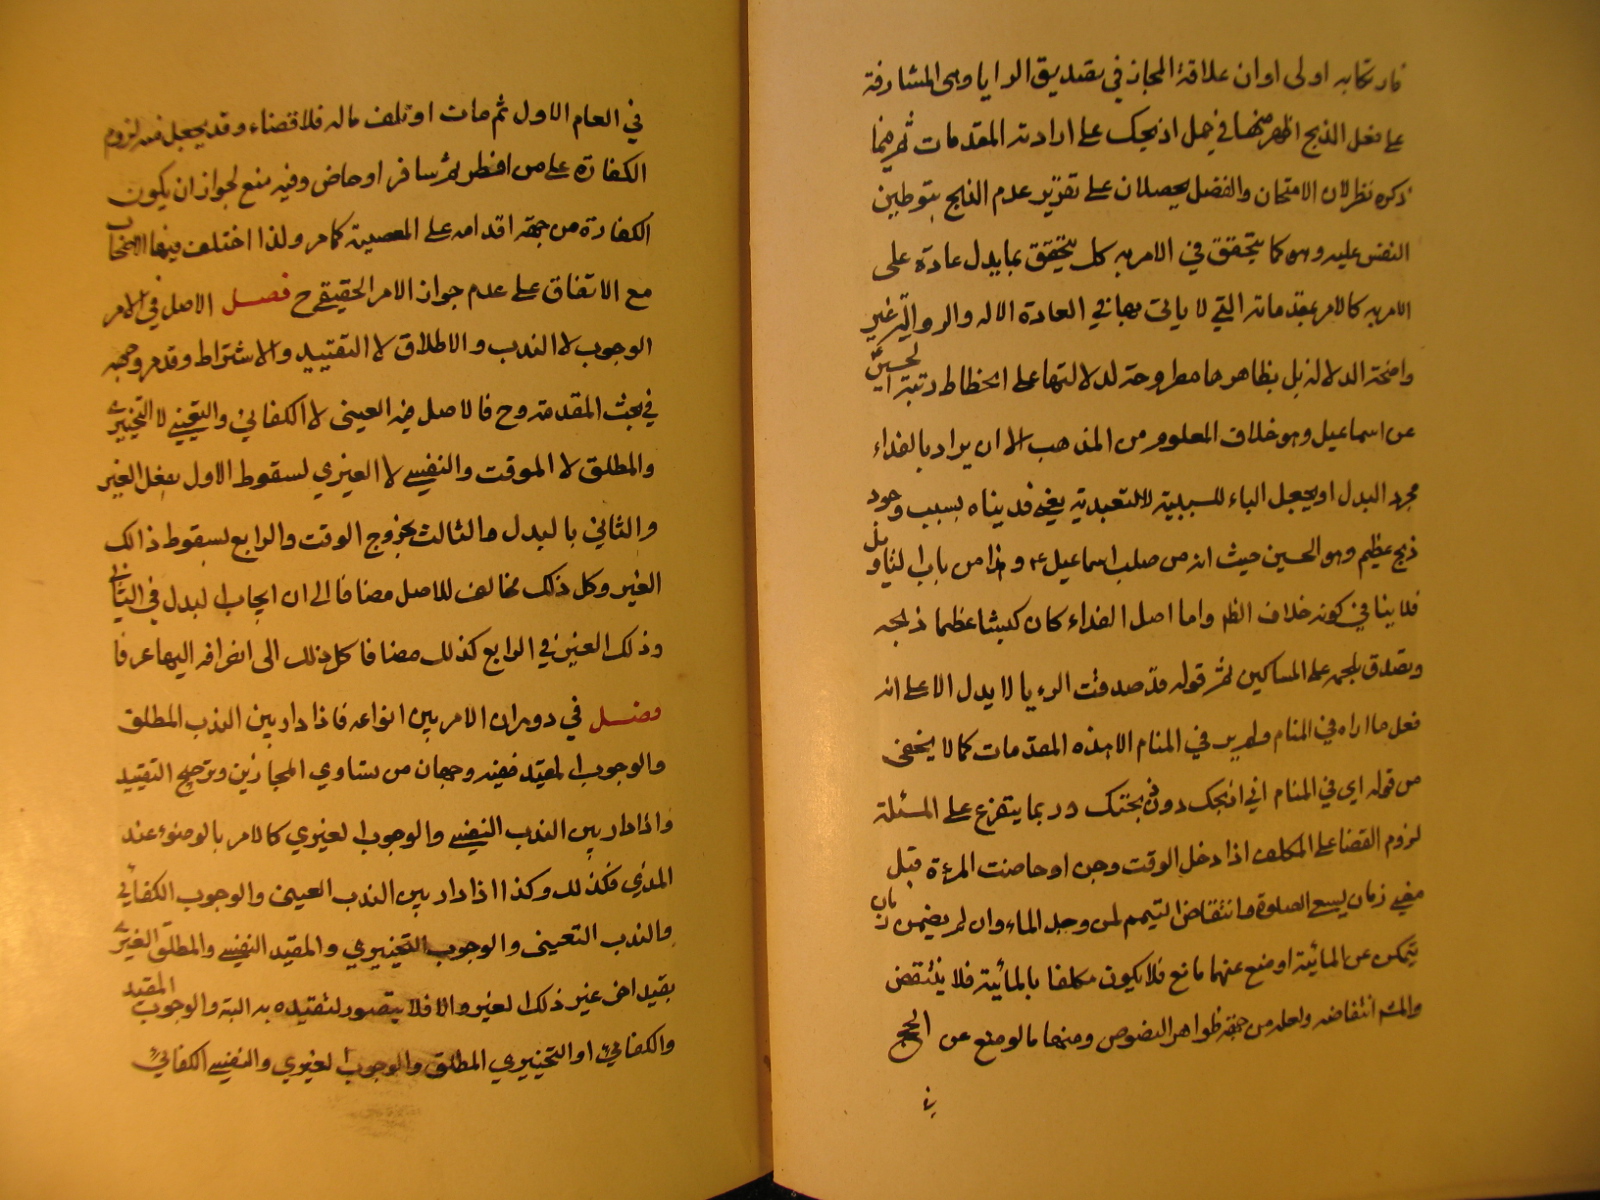 فارتكابه اولى او ان علاقة المجاز في تصديق الرؤيا وهى المشارفة
على فعل الذبح اظهر منها في حمل اذبحك على ارادة المقدمات ثم فيما
ذكره نظر لان الامتحان والفضل يحصلان على تقدير عدم الذبح بتوطين
النفس عليه وهو كما يتحقق في الامر به كك يتحقق بما يدل عادة على
الامر به كالامر بمقدماته التي لا يأتى بها في العادة الا له والرواية غير
واضحة الدلالة بل بظاهرها مطروحة لدلالتها على انحطاط رتبة الحسين
عن اسماعيل وهو خلاف المعلوم من المذهب الا ان يراد بالفداء
مجرد البدل او يجعل الباء للسببية لا للتعدية يعني فديناه بسبب وجود
ذبح عظيم وهو الحسين حيث انه من صلب اسماعيل ع و هذا من باب التاويل
فلا ينافي كونه خلاف الظ واما اصل الفداء كان كبشا عظيما ذبحه
وتصدق بلحمه على المساكين ثم قوله قد صدقت الرءيا لا يدل الا على انه
فعل ما اراه في المنام ولم ير في المنام الا هذه المقدمات كما لا يخفى
من قوله ارى في المنام اني اذبحك دون ذبحتك و ربما يتفرع على المسئلة
لزوم القضا على المكلف اذا دخل الوقت وجن او حاضت المرءة قبل
مضي زمان يسع الصلوة وانتقاض التيمم لمن وجد الماء وان لم يمض زمان
يتمكن من المائية او منع عنها مانع فلا يكون مكلفا بالمائية فلا ينتقض
والمش انتقاضه ولعله من جهة ظواهر النصوص ومنها ما لو منع عن الحج
في
في العام الاول ثم مات او تلف ماله فلا قضاء و قد يجعل منه لزوم
الكفارة على من افطر ثم سافر او حاض وفيه منع لجواز ان يكون
الكفارة من جهة اقدامه على المعصية كما مر ولذا اختلف فيها الاصحاب
مع الاتفاق على عدم جواز الامر الحقيقي ح فصل الاصل في الامر
الوجوب لا الندب والاطلاق لا التقييد والاشتراط وقد مر وجهه
في بحث المقدمة وح فالاصل فيه العيني لا الكفائي والتعييني لا التخييري
والمطلق لا الموقت والنفسي لا الغيري لسقوط الاول بفعل الغير
والثاني بالبدل والثالث بخروج الوقت والرابع بسقوط ذالك
الغير وكل ذلك مخالف للاصل مضافا الى ان ايجاب البدل في الثاني
وذلك الغير في الرابع كذلك مضافا كل ذلك الى انصرافه اليها عرفا
فصل في دوران الامر بين انواعه فاذا دار بين الندب المطلق
والوجوب المقيد ففيه وجهان من تساوي المجازين وترجيح التقييد
واذا دار بين الندب النفسي والوجوب الغيري كالامر بالوضوء عند
المذي فكذلك وكذا اذا دار بين الندب العيني والوجوب الكفائي
والندب التعييني والوجوب التخييري والمقيد النفسي والمطلق الغيري
بقيد اخر غير ذلك الغير والا فلا يتصور لتقيده به البتة والوجوب المقيد
والكفائي او التخييري المطلق والوجوب الغيري والنفسي الكفائي